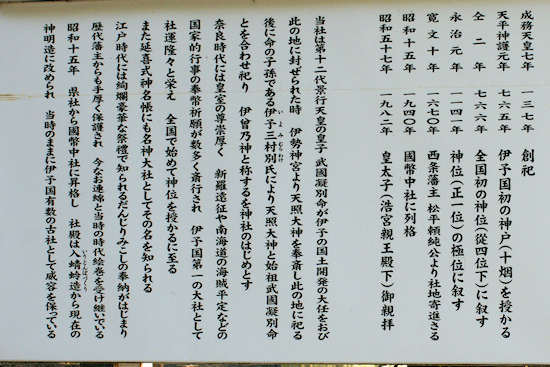 成務天皇七年 一三七年 創祀
天平神護元年 七六五年 伊予国初の神戸(十烟)を授かる
仝二年 七六六年 全国初の神位(從四位下)に叙す
永治元年 一一四一年 神位(正一位)の極位に叙す
寛文十年 一六七〇年 西条藩主・松平頼純公より社地寄進さる
昭和十五年 一九四〇年 國幣中社に列格
昭和五十七年 一九八二年 皇太子(浩宮親王殿下)御親拝
当社は第十二代景行天皇の皇子 武國凝別命が伊予の国土開発の大任をおび
此の地に封ぜられた時 伊勢神宮より天照大神を奉斎し此の地に祀る
後に命の子孫である伊予三村別氏により天照大神と始祖武國凝別命
とを合わせ祀り 伊曽乃神と称するを神社のはじめとす
奈良時代には皇室の尊崇厚く 新羅造征や南海道の海賊平定などの
国家的行事の奉幣祈願が数多く斎行され 伊予国第一の大社として
社運隆々と栄え 全国で始めて神位を授かるに至る
また延喜式神名帳にも名神大社としてその名を知られる
江戸時代には絢爛豪華な祭禮で知られるだんじりみこしの奉納がはじまり
歴代藩主からも手厚く保護され 今なお連綿と当時の時代絵巻を受け継いでいる
昭和十五年 県社から國幣中社に昇格し 社殿は入蜻蛉造から現在の
神明造に改められ 当時のままに伊予国有数の古社として威容を保っている